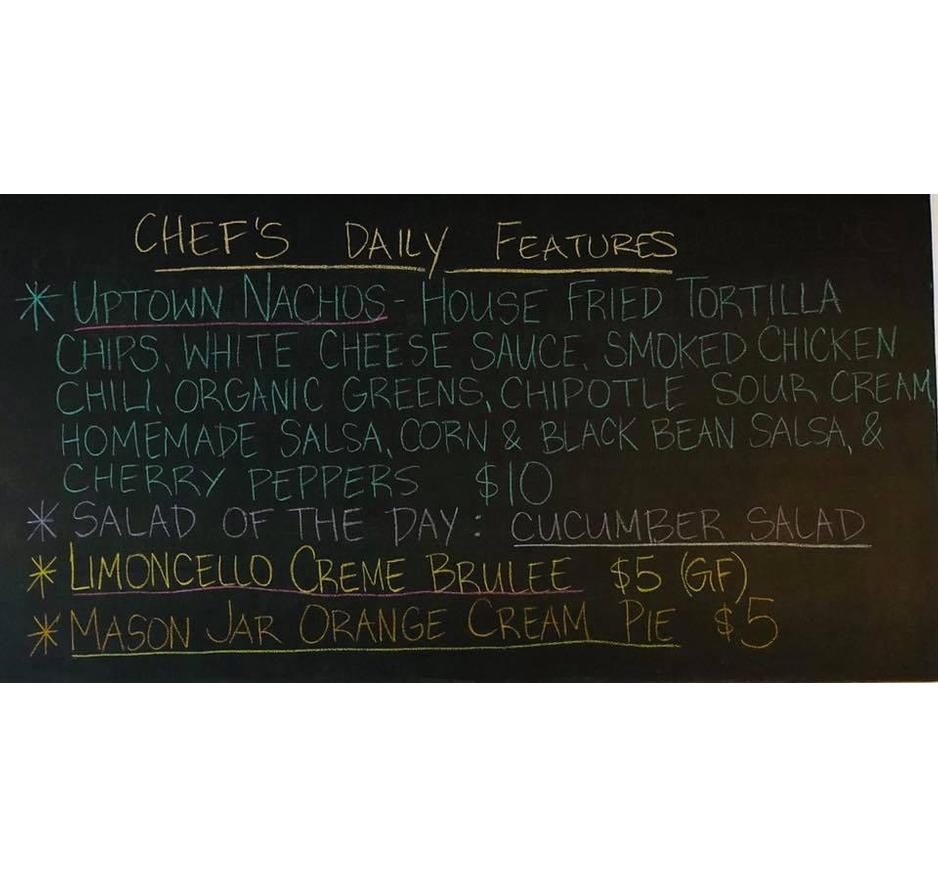 CHEF'S DAILY FEATURES
* UPTOWN NACHOS - HOUSE FRIED TORTILLA
CHIPS, WHITE CHEESE SAUCE, SMOKED CHICKEN
CHILI, ORGANIC GREENS, CHIPOTLE SOUR CREAM,
HOMEMADE SALSA, CORN & BLACK BEAN SALSA, &
CHERRY PEPPERS $10
* SALAD OF THE DAY: CUCUMBER SALAD
* LIMONCELLO CREME BRULEE $5 (GF)
* MASON JAR ORANGE CREAM PIE $5